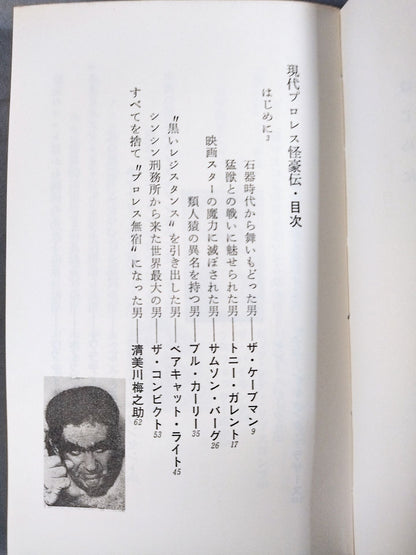 現代プロレス怪豪伝・目次
はじめに3
石器時代から舞いもどった男――ザ・ケーブマン9
猛獣との戦いに魅せられた男――トニー・ガレント17
映画スターの魔力に滅ぼされた男――サムソン・バーグ26
類人猿の異名を持つ男――ブル・カーリー35
"黒いレジスタンス"を引き出した男――ベアキャット・ライト45
シンシン刑務所から来た世界最大の男――ザ・コンビクト53
すべてを捨て"プロレス無宿"になった男――清美川梅之助62